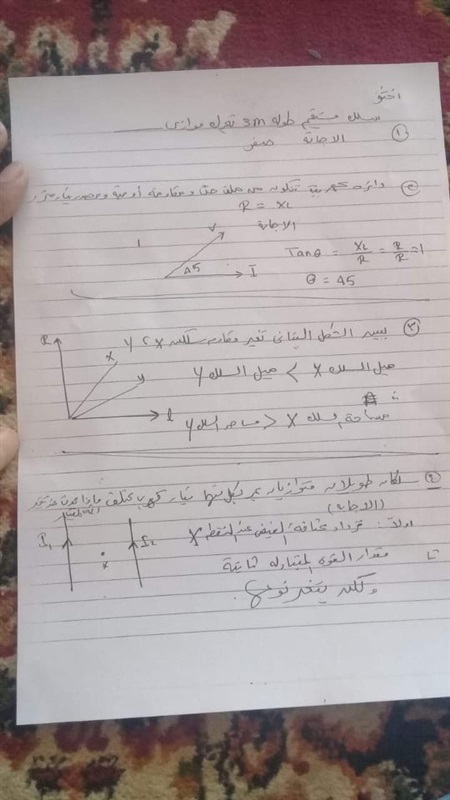 اختر
① سلك مستقيم طوله 3m تحرك موازى
الاجابة صفر
② دائرة كهربية تتكون من ملف حث ومقاومة أومية ومصدر تيار متردد
R = XL
الاجابة
V
45 I
Tanθ = XL/R = R/R = 1
θ = 45
③ يبين الشكل البيانى تغير مقاومة سلكين X ، Y
R
X
y
l
ميل السلك X > ميل السلك Y
∴
مساحة السلك X < مساحة السلك Y
④ سلكان طويلان متوازيان يمر بكل منهما تيار كهربى مختلف ماذا يحدث عند
(الاجابة)
I₁ I₂
x
اولاً: تزداد كثافة الفيض عند النقطة X
ثا مقدار القوه المتبادله ثابتة
ولكن يتغير نوعها.